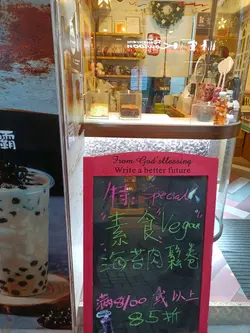 霸
From God's blessing
Write a better future
特: special
素食 Vegan
海苔肉鬆卷
滿$100 或以上
85折